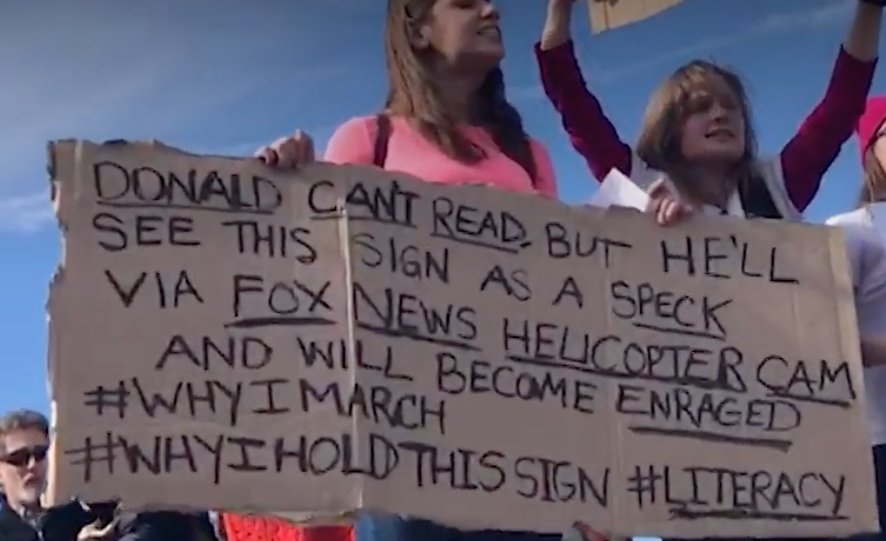 DONALD CAN'T READ, BUT HE'LL
SEE THIS SIGN AS A SPECK
VIA FOX NEWS HELICOPTER CAM
AND WILL BECOME ENRAGED
#WHYIMARCH
#WHYIHOLDTHISSIGN #LITERACY